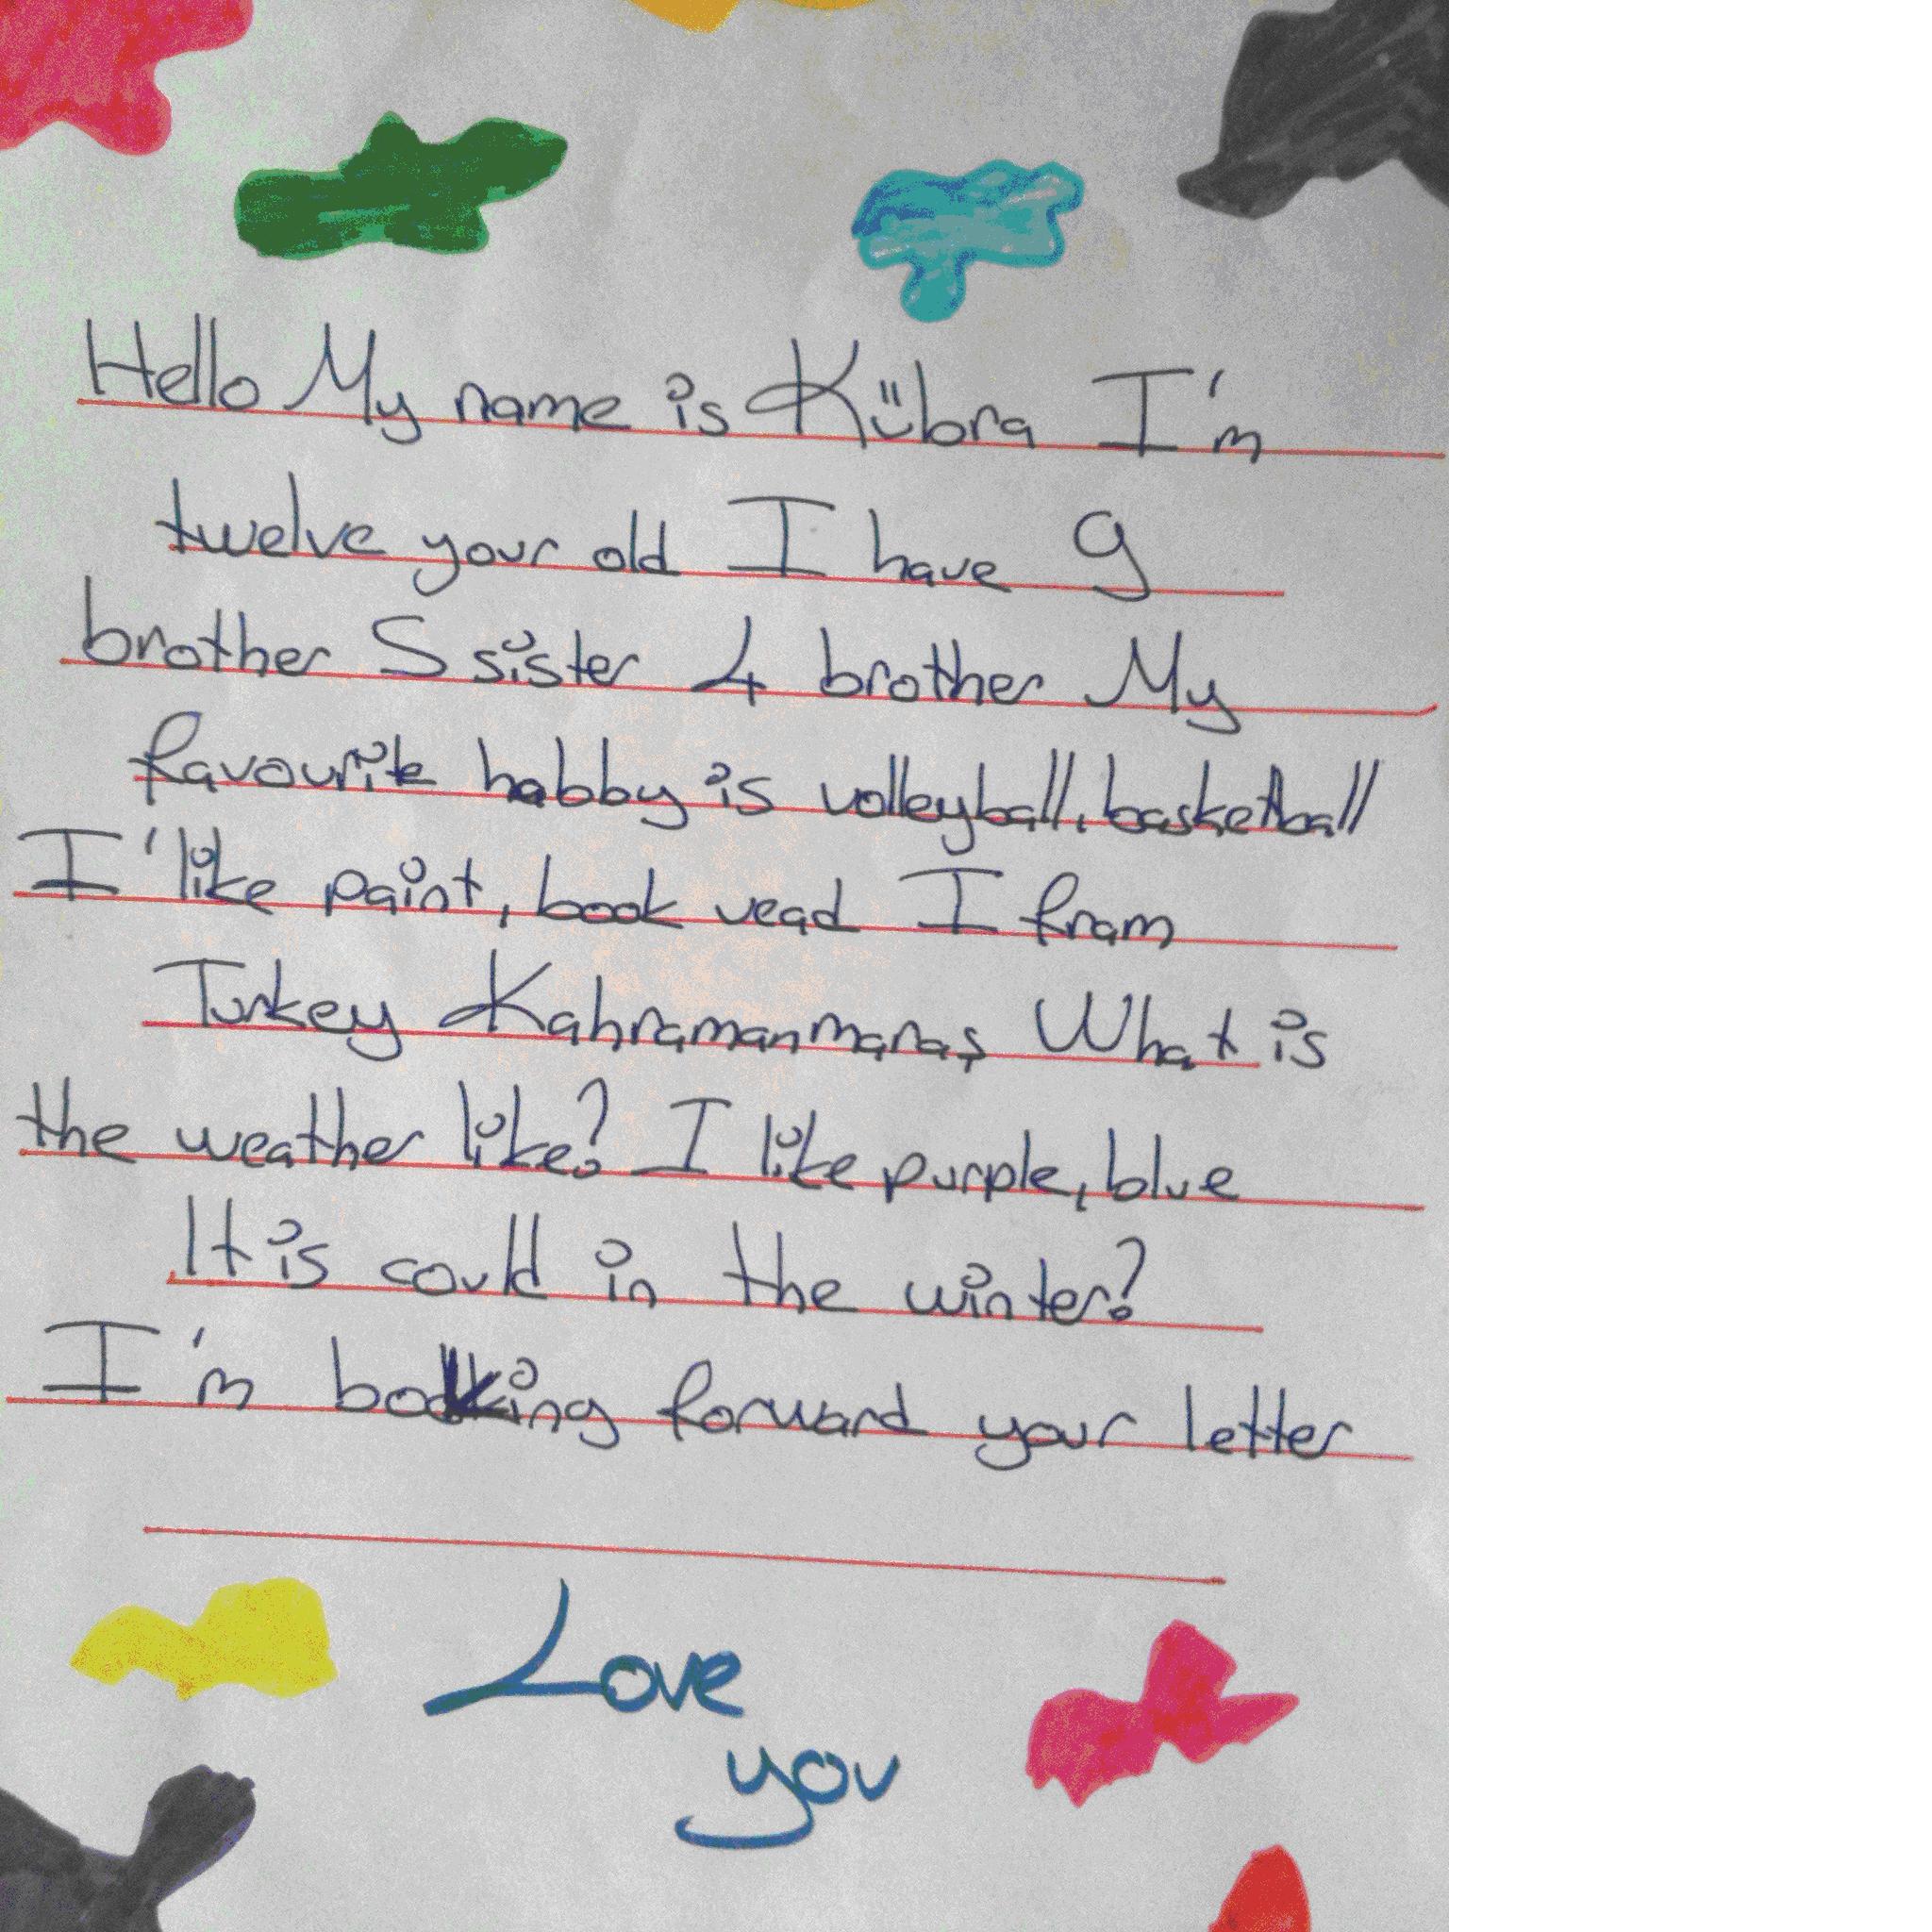 Hello My name is Kübra I'm
twelve your old I have 9
brother 5 sister 4 brother My
favourite habby is volleyball, basketball
I'like paint, book vead I fram
Turkey Kahramanmaraş What is
the weather like? I like purple, blue
It is could in the winter?
I'm booking forward your letter
Love
you